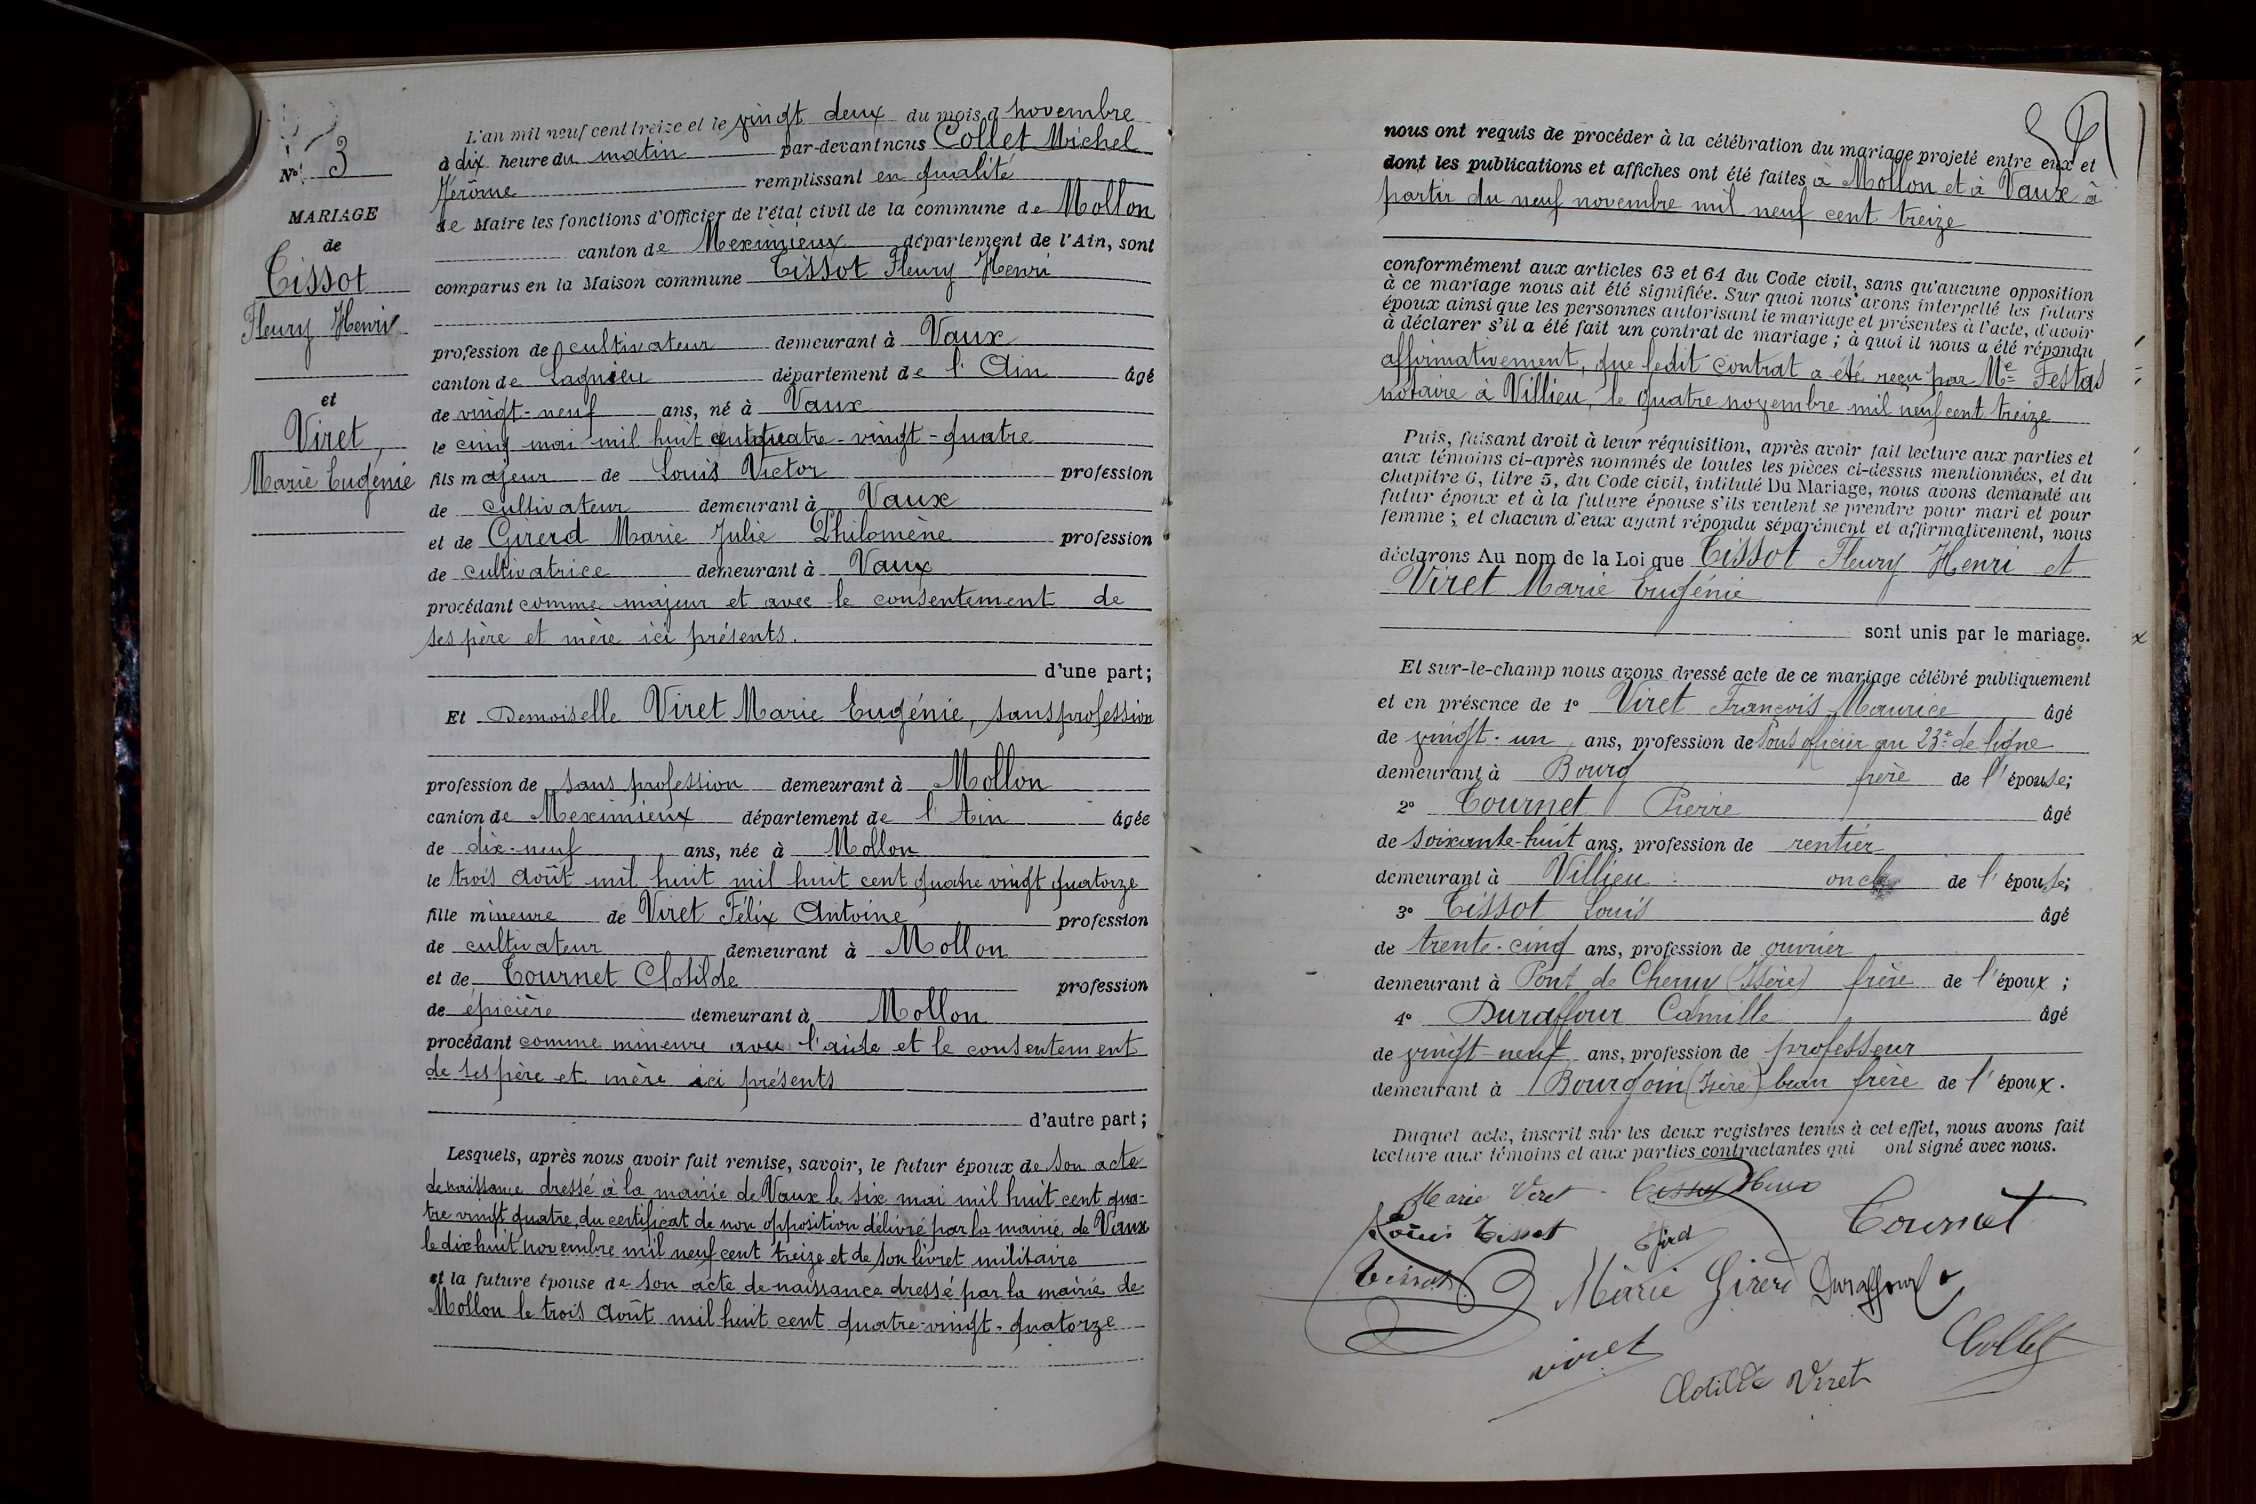 N° 3
MARIAGE
de
Tissot
Fleury Henri
et
Viret,
Marie Eugénie
L'an mil neuf cent treize et le vingt deux du mois d novembre
à dix heure du matin par-devant nous Collet Michel
Jérôme remplissant en qualité
de Maire les fonctions d'Officier de l'état civil de la commune de Mollon
canton de Meximieux département de l'Ain, sont
comparus en la Maison commune Tissot Fleury Henri
profession de cultivateur demeurant à Vaux
canton de Lagnieu département de l'Ain âgé
de vingt-neuf ans, né à Vaux
le cinq mai mil huit cent quatre-vingt-quatre
fils majeur de Louis Victor profession
de cultivateur demeurant à Vaux
et de Girerd Marie Julie Philomène profession
de cultivatrice demeurant à Vaux
procédant comme majeur et avec le consentement de
ses père et mère ici présents.
d'une part;
Et Demoiselle Viret Marie Eugénie, sans profession
profession de sans profession demeurant à Mollon
canton de Meximieux département de l'Ain âgée
de dix-neuf ans, née à Mollon
le trois août mil huit mil huit cent quatre vingt quatorze
fille mineure de Viret Félix Antoine profession
de cultivateur demeurant à Mollon
et de Tournet Clotilde profession
de épicière demeurant à Mollon
procédant comme mineure avec l'aide et le consentement
de ses père et mère ici présents
d'autre part;
Lesquels, après nous avoir fait remise, savoir, le futur époux de son acte
de naissance dressé à la mairie de Vaux le six mai mil huit cent qua-
tre vingt quatre, du certificat de non opposition délivré par la mairie de Vaux
le dix huit novembre mil neuf cent treize et de son livret militaire
et la future épouse de son acte de naissance dressé par la mairie de
Mollon le trois août mil huit cent quatre-vingt-quatorze
nous ont requis de procéder à la célébration du mariage projeté entre eux et
dont les publications et affiches ont été faites à Mollon et à Vaux à
partir du neuf novembre mil neuf cent treize
conformément aux articles 63 et 64 du Code civil, sans qu'aucune opposition
à ce mariage nous ait été signifiée. Sur quoi nous avons interpellé les futurs
époux ainsi que les personnes autorisant le mariage et présentes à l'acte, d'avoir
à déclarer s'il a été fait un contrat de mariage; à quoi il nous a été répondu
affirmativement, que ledit contrat a été reçu par Me Festas
notaire à Villieu, le quatre novembre mil neuf cent treize
Puis, faisant droit à leur réquisition, après avoir fait lecture aux parties et
aux témoins ci-après nommés de toutes les pièces ci-dessus mentionnées, et du
chapitre 6, titre 5, du Code civil, intitulé Du Mariage, nous avons demandé au
futur époux et à la future épouse s'ils veulent se prendre pour mari et pour
femme; et chacun d'eux ayant répondu séparément et affirmativement, nous
déclarons Au nom de la Loi que Tissot Fleury Henri et
Viret Marie Eugénie
sont unis par le mariage.
Et sur-le-champ nous avons dressé acte de ce mariage célébré publiquement
et en présence de 1° Viret François Maurice âgé
de vingt-un ans, profession de Sous officier au 23e de ligne
demeurant à Bourg frère de l'épouse;
2° Tournet Pierre âgé
de soixante-huit ans, profession de rentier
demeurant à Villieu oncle de l'épouse;
3° Tissot Louis âgé
de trente-cinq ans, profession de ouvrier
demeurant à Pont de Cheruy (Isère) frère de l'époux;
4° Duraffour Camille âgé
de vingt-neuf ans, profession de professeur
demeurant à Bourgoin (Isère) beau frère de l'époux.
Duquel acte, inscrit sur les deux registres tenus à cet effet, nous avons fait
lecture aux témoins et aux parties contractantes qui ont signé avec nous.
Marie Viret Tissot Henri
Louis Tissot Tournet
Tissot Marie Girerd Duraffour
Viret Collet
Clotilde Viret